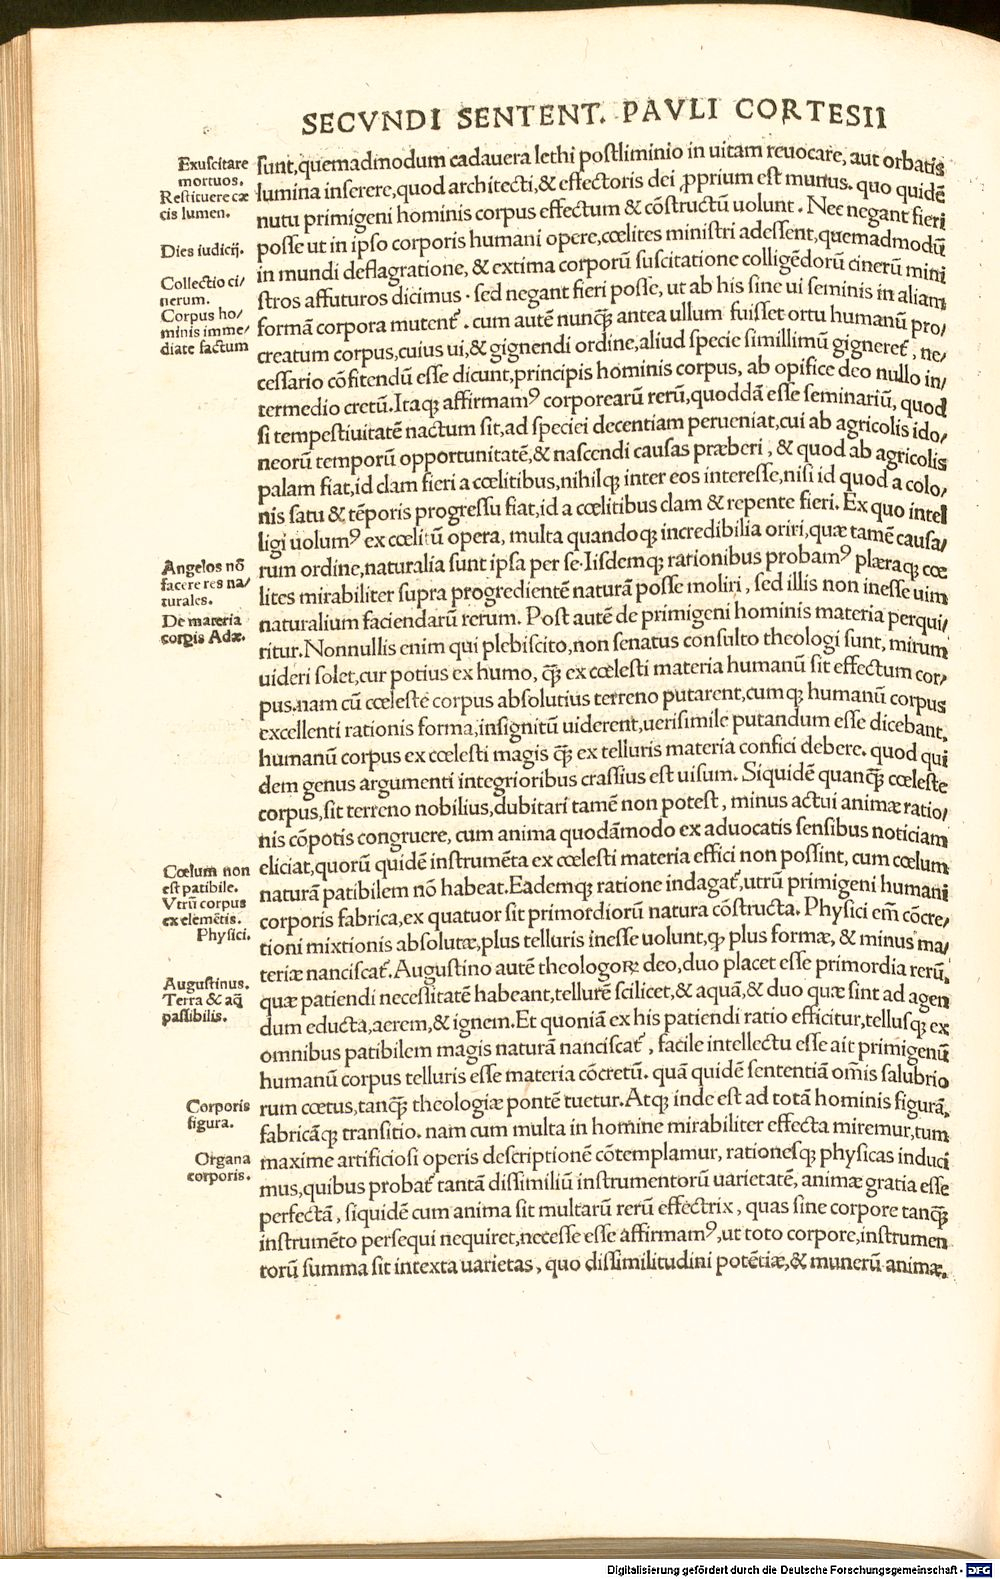 SECVNDI SENTENT. PAVLI CORTESII
Exuscitare
mortuos.
Restituere cæ
cis lumen.
Dies iudicij.
Collectio ci/
nerum.
Corpus ho/
minis imme/
diate factum
Angelos nõ
facere res na/
turales.
De materia
corpis Adæ.
Cœlum non
est patibile.
Vtrũ corpus
ex elemẽtis.
Physici.
Augustinus.
Terra & aq̃
passibilis.
Corporis
figura.
Organa
corporis.
sunt, quemadmodum cadauera lethi postliminio in uitam reuocare, aut orbatis
lumina inserere, quod architecti, & effectoris dei ꝓprium est munus. quo quidẽ
nutu primigeni hominis corpus effectum & cõstructũ uolunt. Nec negant fieri
posse ut in ipso corporis humani opere, cœlites ministri adessent, quemadmodũ
in mundi deflagratione, & extima corporũ suscitatione colligẽdorũ cinerũ mini
stros affuturos dicimus. sed negant fieri posse, ut ab his sine ui seminis in aliam
formã corpora mutent᷑. cum autẽ nunq̃ antea ullum fuisset ortu humanũ pro/
creatum corpus, cuius ui, & gignendi ordine, aliud specie simillimũ gigneret᷑, ne/
cessario cõfitendũ esse dicunt, principis hominis corpus, ab opifice deo nullo in/
termedio cretũ. Itaq; affirmamꝰ corporearũ rerũ, quoddã esse seminariũ, quod
si tempestiuitatẽ nactum sit, ad speciei decentiam perueniat, cui ab agricolis ido/
neorũ temporũ opportunitatẽ, & nascendi causas præberi, & quod ab agricolis
palam fiat, id clam fieri a cœlitibus, nihilq; inter eos interesse, nisi id quod a colo/
nis satu & tẽporis progressu fiat, id a cœlitibus clam & repente fieri. Ex quo intel
ligi uolumꝰ ex cœlitũ opera, multa quandoq; incredibilia oriri, quæ tamẽ causa/
rum ordine, naturalia sunt ipsa per se. Iisdemq; rationibus probamꝰ plæraq; cœ
lites mirabiliter supra progredientẽ naturã posse moliri, sed illis non inesse uim
naturalium faciendarũ rerum. Post autẽ de primigeni hominis materia perqui/
ritur. Nonnullis enim qui plebiscito, non senatus consulto theologi sunt, mirum
uideri solet, cur potius ex humo, q̃ ex cœlesti materia humanũ sit effectum cor/
pus. nam cũ cœleste corpus absolutius terreno putarent, cumq; humanũ corpus
excellenti rationis forma, insignitũ uiderent, uerisimile putandum esse dicebant,
humanũ corpus ex cœlesti magis q̃ ex telluris materia confici debere. quod qui
dem genus argumenti integrioribus crassius est uisum. Siquidẽ quanq̃ cœleste
corpus, sit terreno nobilius, dubitari tamẽ non potest, minus actui animæ ratio/
nis cõpotis congruere, cum anima quodãmodo ex aduocatis sensibus noticiam
eliciat, quorũ quidẽ instrumẽta ex cœlesti materia effici non possint, cum cœlum
naturã patibilem nõ habeat. Eademq; ratione indagat᷑, utrũ primigeni humani
corporis fabrica, ex quatuor sit primordiorũ natura cõstructa. Physici em̃ cõcre/
tioni mixtionis absolutæ, plus telluris inesse uolunt, ꝙ plus formæ, & minus ma/
teriæ nanciscat᷑. Augustino autẽ theologoꝝ deo, duo placet esse primordia rerũ,
quæ patiendi necessitatẽ habeant, tellurẽ scilicet, & aquã, & duo quæ sint ad agen
dum educta, aerem, & ignem. Et quoniã ex his patiendi ratio efficitur, tellusq; ex
omnibus patibilem magis naturã nanciscat᷑, facile intellectu esse ait primigenũ
humanũ corpus telluris esse materia cõcretũ. quã quidẽ sententiã om̃is salubrio
rum cœtus, tanq̃ theologiæ pontẽ tuetur. Atq; inde est ad totã hominis figurã,
fabricãq; transitio. nam cum multa in homine mirabiliter effecta miremur, tum
maxime artificiosi operis descriptionẽ cõtemplamur, rationesq; physicas induci
mus, quibus probat᷑ tantã dissimiliũ instrumentorũ uarietatẽ, animæ gratia esse
perfectã, siquidẽ cum anima sit multarũ rerũ effectrix, quas sine corpore tanq̃
instrumẽto persequi nequiret, necesse esse affirmamꝰ, ut toto corpore, instrumen
torũ summa sit intexta uarietas, quo dissimilitudini potẽtiæ, & munerũ animæ.
Digitalisierung gefördert durch die Deutsche Forschungsgemeinschaft - DFG